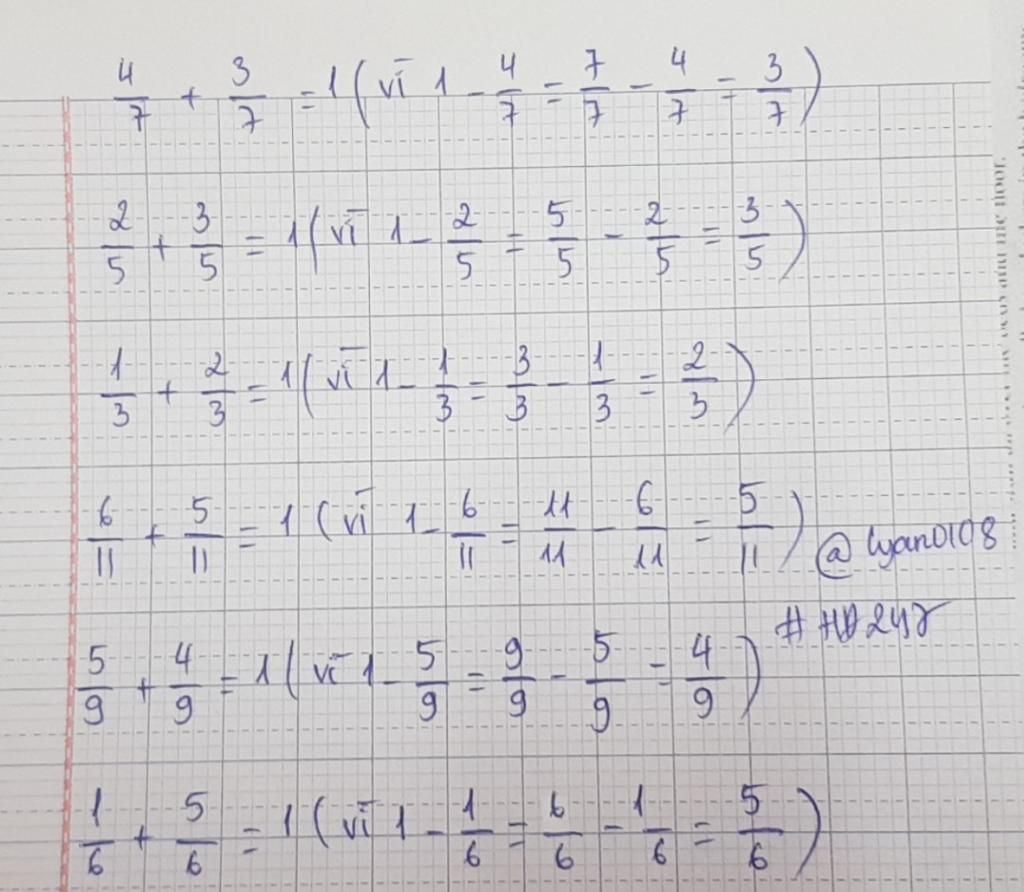 4/7 + 3/7 = 1 (vì 1 - 4/7 = 7/7 - 4/7 = 3/7)
2/5 + 3/5 = 1 (vì 1 - 2/5 = 5/5 - 2/5 = 3/5)
1/3 + 2/3 = 1 (vì 1 - 1/3 = 3/3 - 1/3 = 2/3)
6/11 + 5/11 = 1 (vì 1 - 6/11 = 11/11 - 6/11 = 5/11)
@lyan0108
#HD247
5/9 + 4/9 = 1 (vì 1 - 5/9 = 9/9 - 5/9 = 4/9)
1/6 + 5/6 = 1 (vì 1 - 1/6 = 6/6 - 1/6 = 5/6)